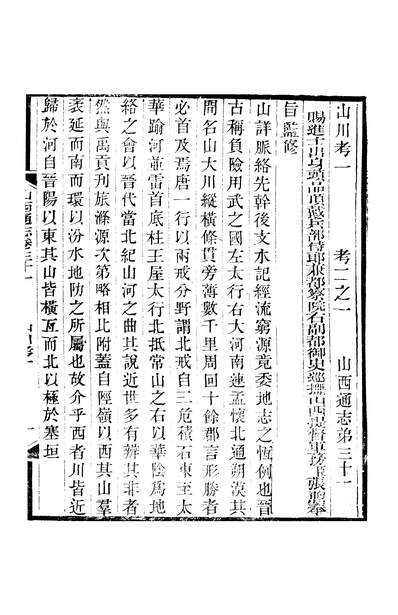 山川考一　考二之一　山西通志第三十一
賜進士出身頭品頂戴兵部侍郎兼都察院右副都御史巡撫山西提督軍務臣張煦奉
旨監修
山詳脈絡先幹後支水記經流窮源竟委地志之恆例也晉
古稱負險用武之國左太行右大河南連孟懷北通朔漠其
間名山大川縱橫條貫旁薄數千里周回十餘郡言形勝者
必首及焉唐一行以兩戒分野謂北戒自三危積石東至太
華踰河並雷首底柱王屋太行北抵常山之右以華陰爲地
絡之會以晉代當北紀山河之曲其說近世多有辨其非者
然與禹貢刊旅滌源次第略相比附蓋自陘嶺以西其山羣
袤延而南而環以汾水地防之所屬也故介乎西者川皆近
歸於河自晉陽以東其山皆橫亙而北以極於塞垣